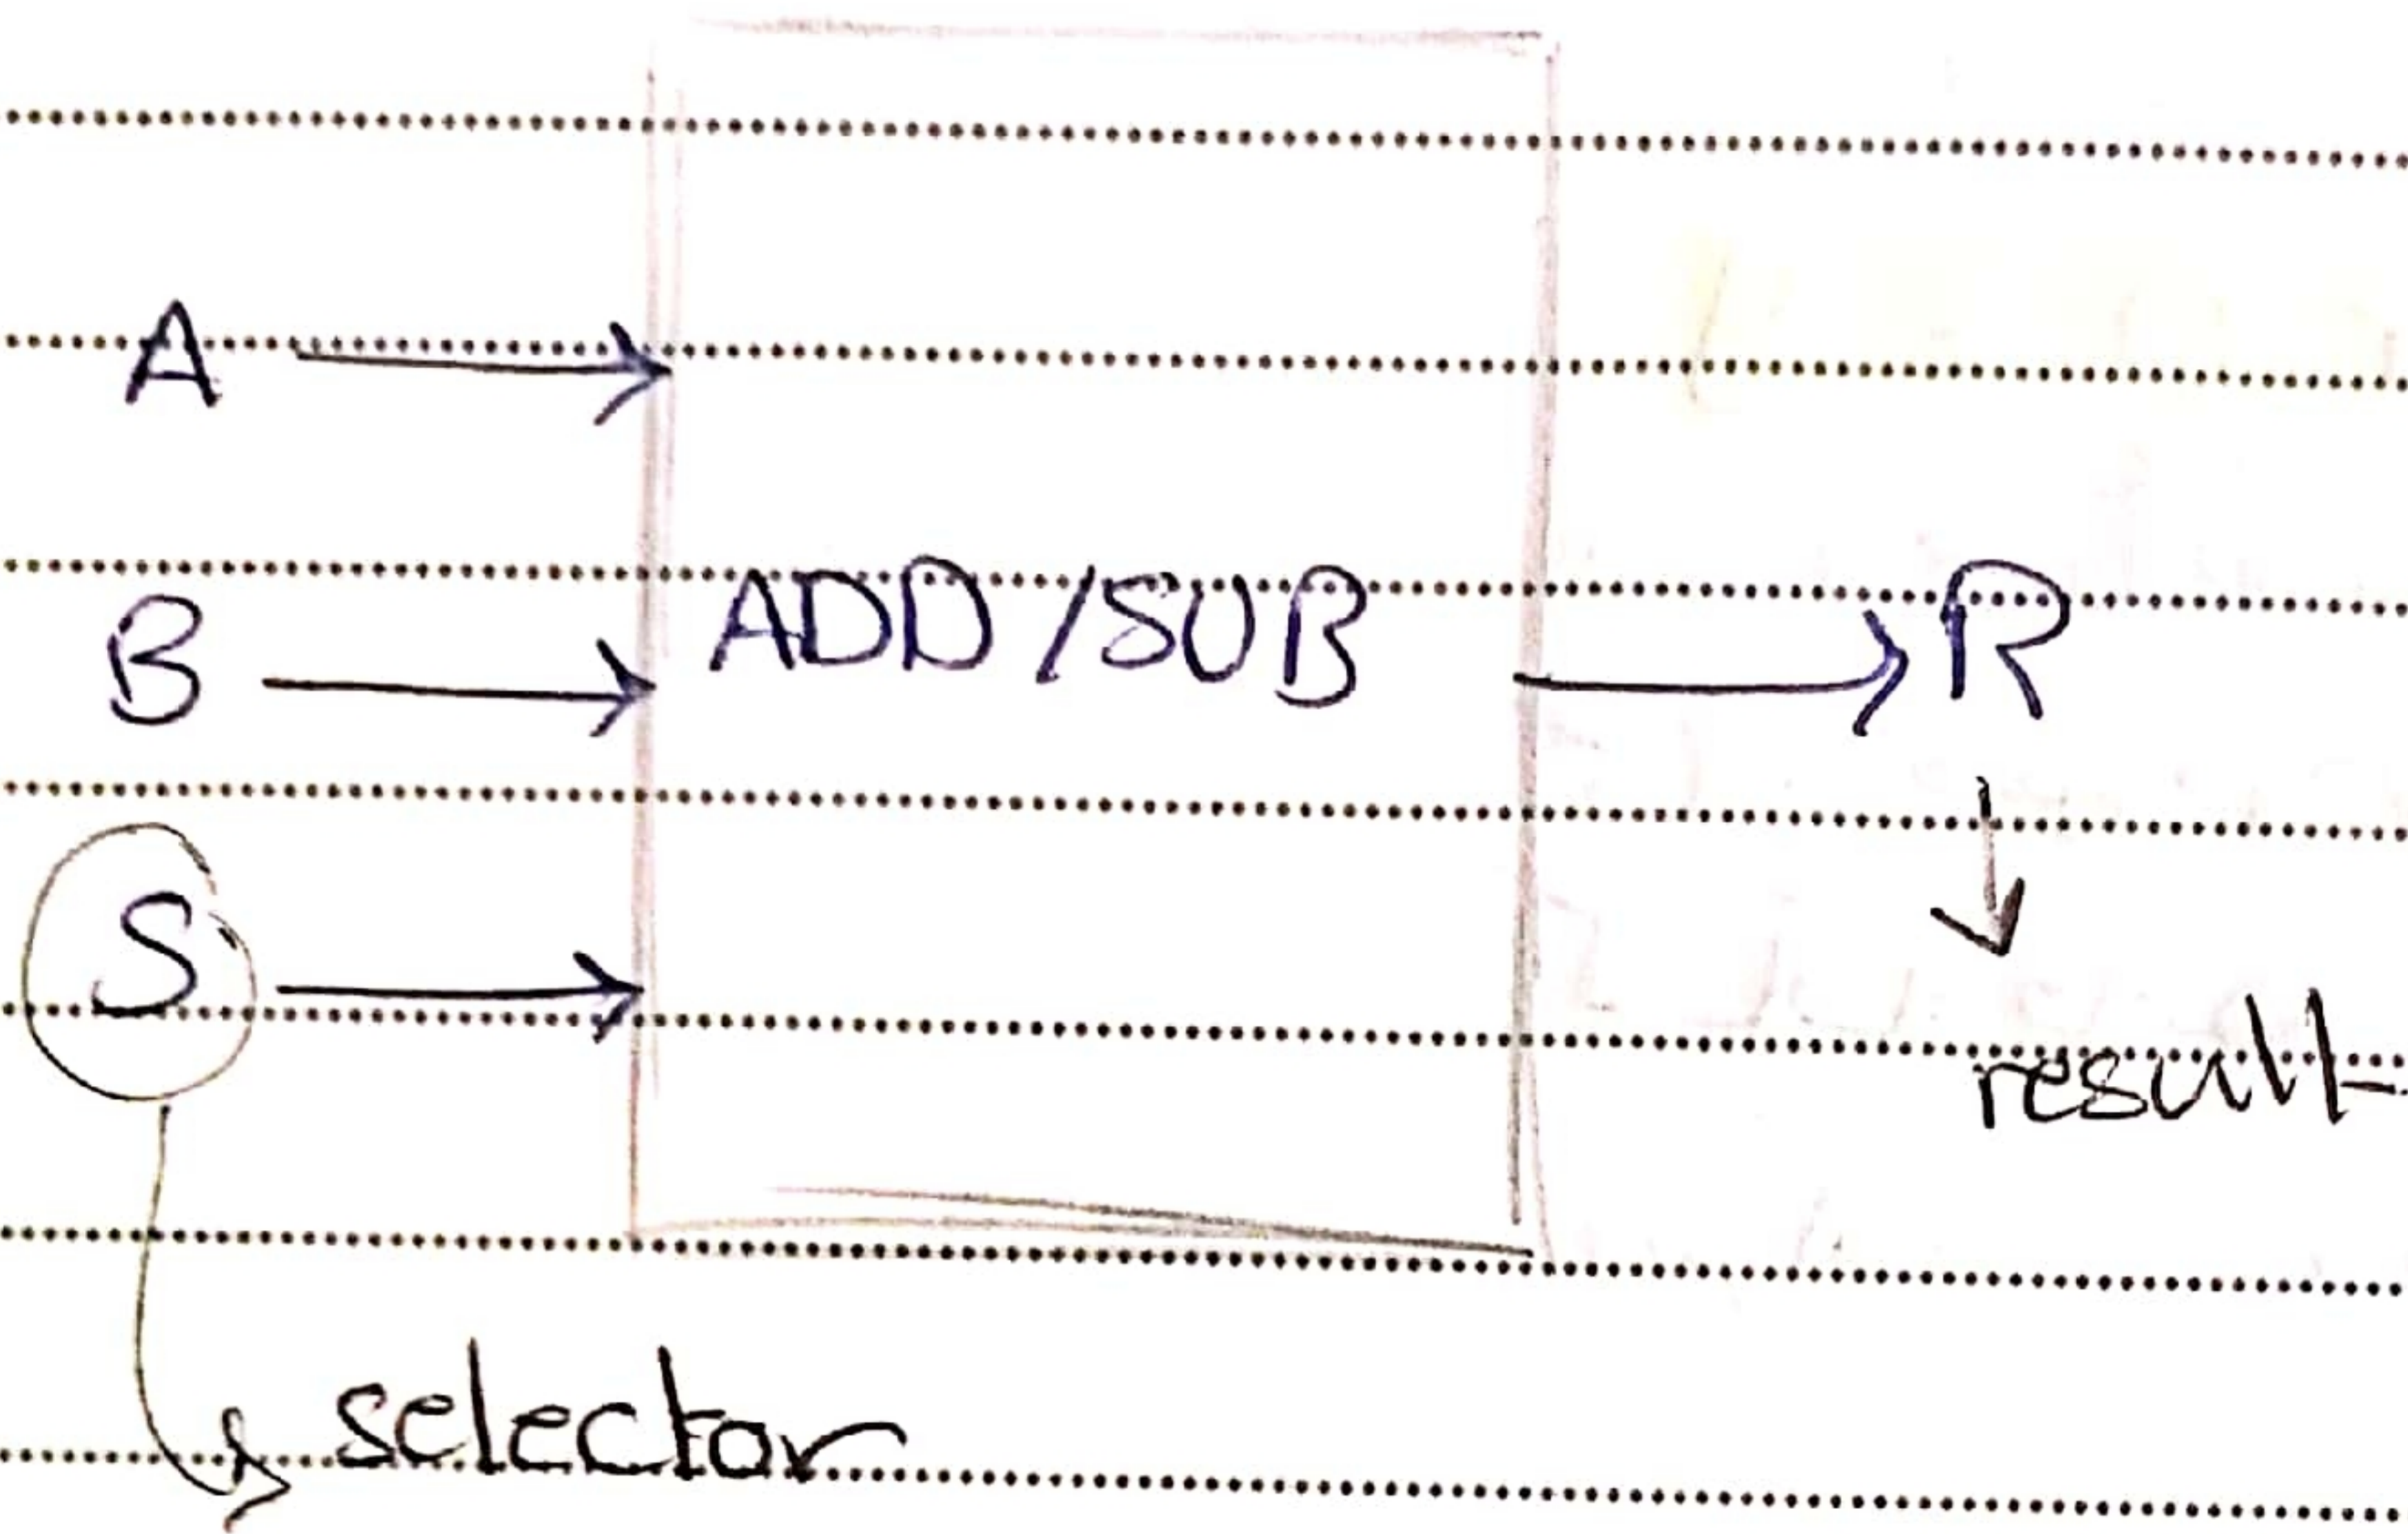 A
B ADD/SUB R
S
result
selector